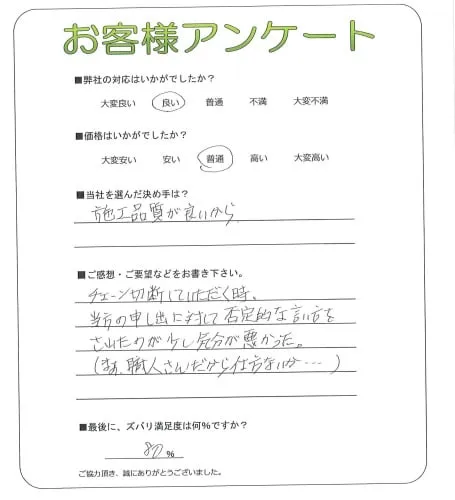 お客様アンケート
■弊社の対応はいかがでしたか？
大変良い 良い 普通 不満 大変不満
■価格はいかがでしたか？
大変安い 安い 普通 高い 大変高い
■当社を選んだ決め手は？
施工品質が良いから
■ご感想・ご要望などをお書き下さい。
チェーン切断していただく時、
当方の申し出に対して否定的な言い方を
されたのが少し気分が悪かった。
(まあ、職人さんだから仕方ないか…)
■最後に、ズバリ満足度は何%ですか？
80 %
ご協力頂き、誠にありがとうございました。